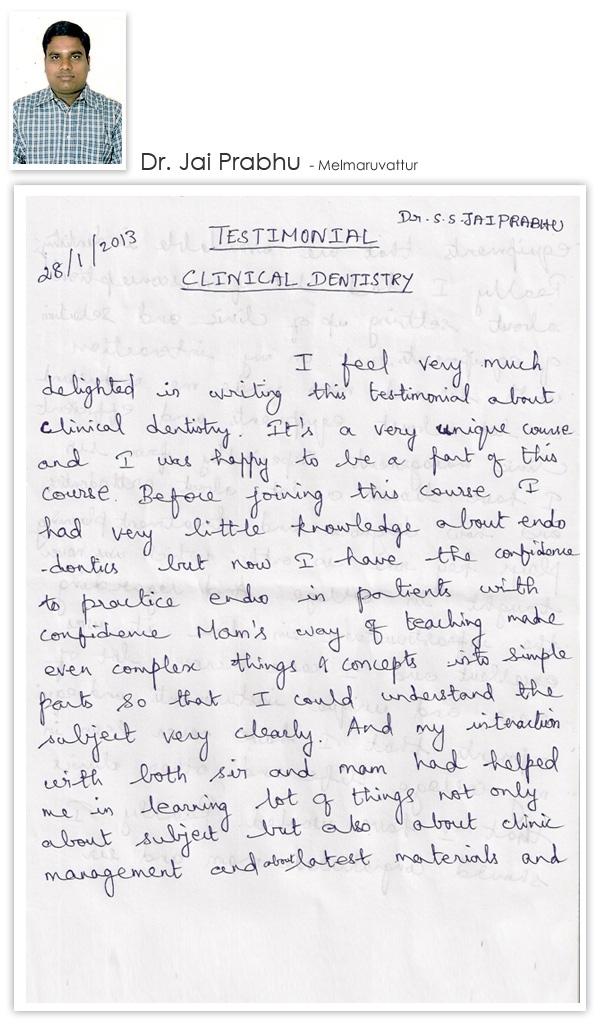 Dr. Jai Prabhu - Melmaruvattur
Dr. S.S JAIPRABHU
28/1/2013
TESTIMONIAL
CLINICAL DENTISTRY
I feel very much
delighted in writing this testimonial about
clinical dentistry. It's a very unique course
and I was happy to be a part of this
course. Before joining this course I
had very little knowledge about endo
-dontics but now I have the confidence
to practice endo in patients with
confidence Mam's way of teaching made
even complex things & concepts into simple
parts so that I could understand the
subject very clearly. And my interaction
with both sir and mam had helped
me in learning lot of things not only
about subject but also about clinic
management and about latest materials and